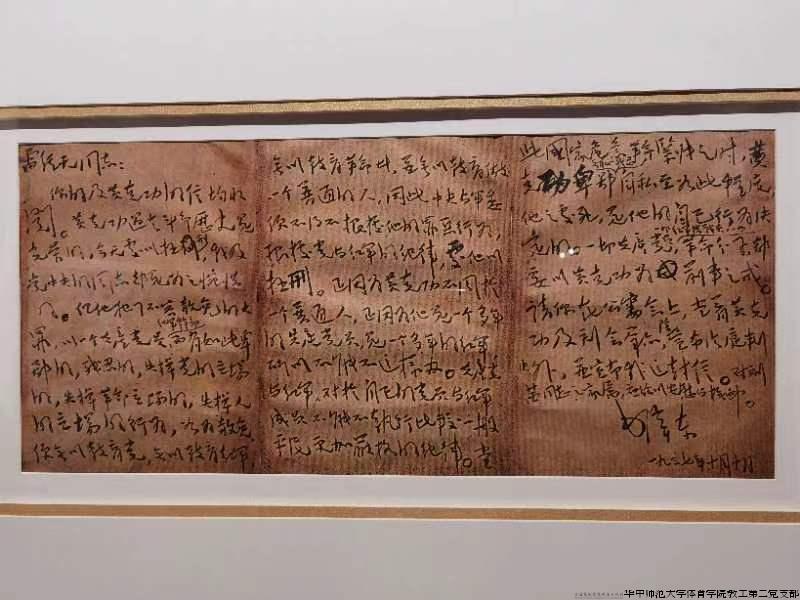 雷经天同志：
你的及黄克功的信均收
阅。黄克功过去斗争历史是
光荣的，今天处以极刑，我及
党中央的同志都是为之惋惜
的。但他犯了不容赦免的大
罪，以一个共产党员红军干部而有如此卑
鄙的，残忍的，失掉党的立场
的，失掉革命立场的，失掉人
的立场的行为，如为赦免，
便无以教育党，无以教育红军，
无以教育革命者，并无以教育做
一个普通的人，因此中央与军委
便不得不根据他的罪恶行为，
根据党与红军的纪律，处他以
极刑。正因为黄克功不同于
一个普通人，正因为他是一个多年
的共产党员，是一个多年的红军，
所以不能不这样办。共产党
与红军，对于自己的党员与红军
成员不能不执行比较一般
平民更加严格的纪律。当
此国家危急革命紧张之时，黄
克功卑鄙无耻残忍自私至如此程度，
他之处死，是他的自己行为决
定的。一切共产党员，一切红军指战员，一切革命分子，都
要以黄克功为前车之戒。
请你在公审会上，当着黄克
功及到会群众，除宣布法庭判
决外，并宣布我这封信。对刘
茜同志之家属，应给以安慰与抚恤。
毛泽东
一九三七年十月十日
华中师范大学体育学院教工第二党支部